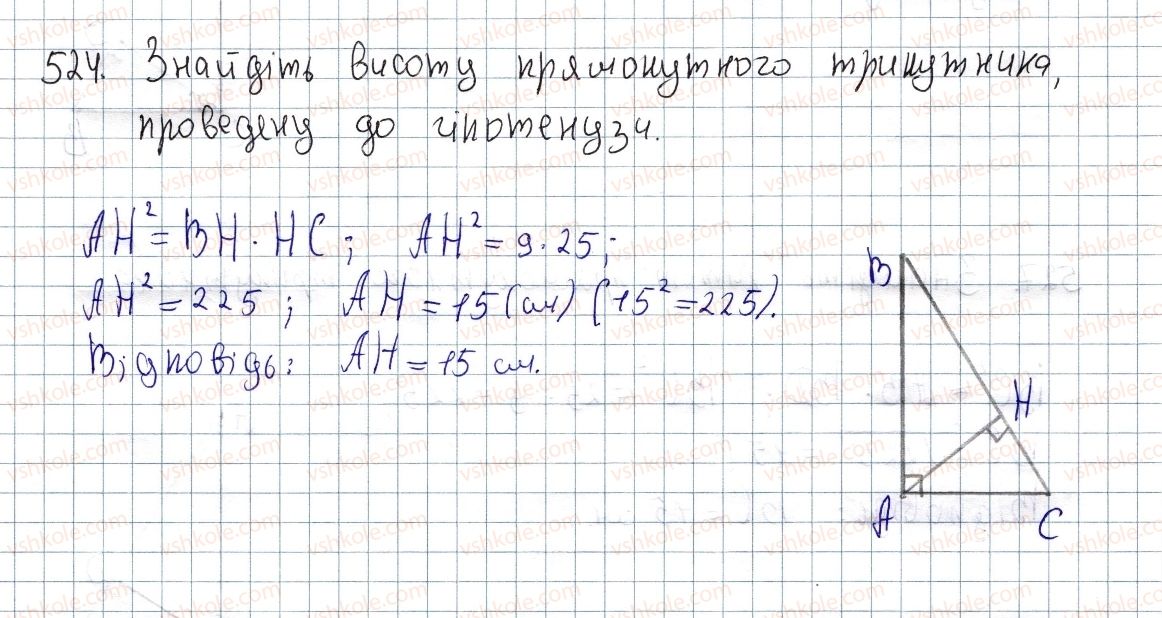 524. Знайдіть висоту прямокутного трикутника,
проведену до гіпотенузи.
AH² = BH · HC; AH² = 9·25;
AH² = 225; AH = 15 (см) (15² = 225).
Відповідь: AH = 15 см.
B
H
A
C